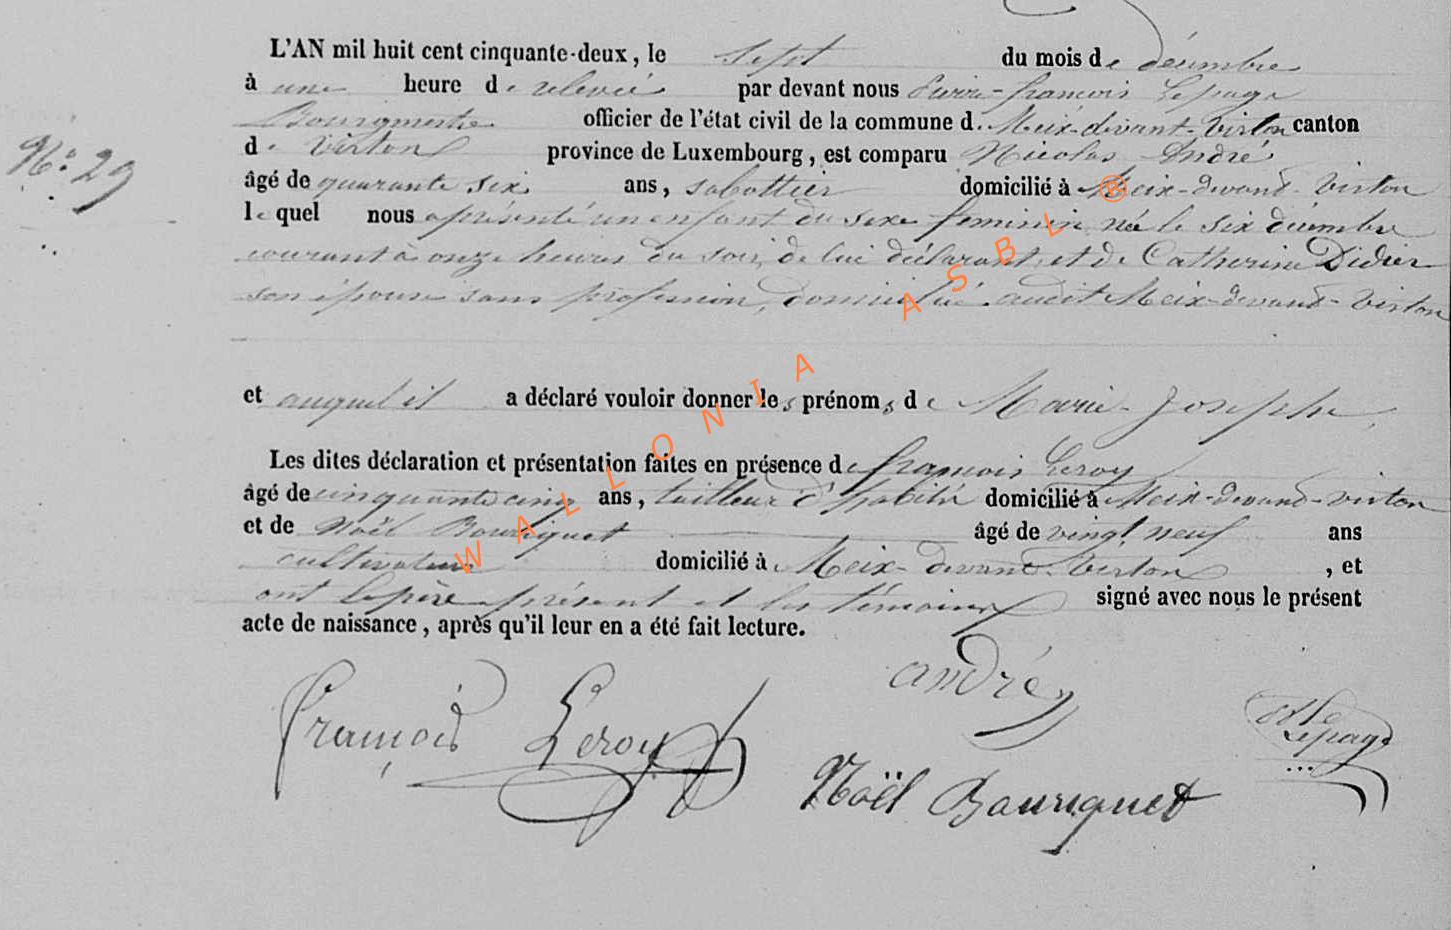 L'AN mil huit cent cinquante-deux, le sept du mois de décembre
à une heure de relevée par devant nous Pierre-françois Lepage
Bourgmestre officier de l'état civil de la commune de Meix-devant-Virton canton
de Virton province de Luxembourg, est comparu Nicolas André
N° 29
âgé de quarante six ans, sabottier domicilié à Meix-devant-Virton
lequel nous a présenté un enfant du sexe feminin, née le six décembre
courant à onze heures du soir, de lui déclarant, et de Catherine Didier
son épouse sans profession, domiciliée audit Meix-devant-Virton
et auquel il a déclaré vouloir donner les prénoms de Marie-Josephe,
Les dites déclaration et présentation faites en présence de françois Leroy
âgé de cinquante cinq ans, tailleur d'habits domicilié à Meix-devant-virton
et de Noël Bouriquet âgé de vingt neuf ans
cultivateur domicilié à Meix-devant-Virton, et
ont le père présent et les témoins signé avec nous le présent
acte de naissance, après qu'il leur en a été fait lecture.
andré
françois Leroy
Lepage
Noël Bouriquet
WALLONIA ASBL ®